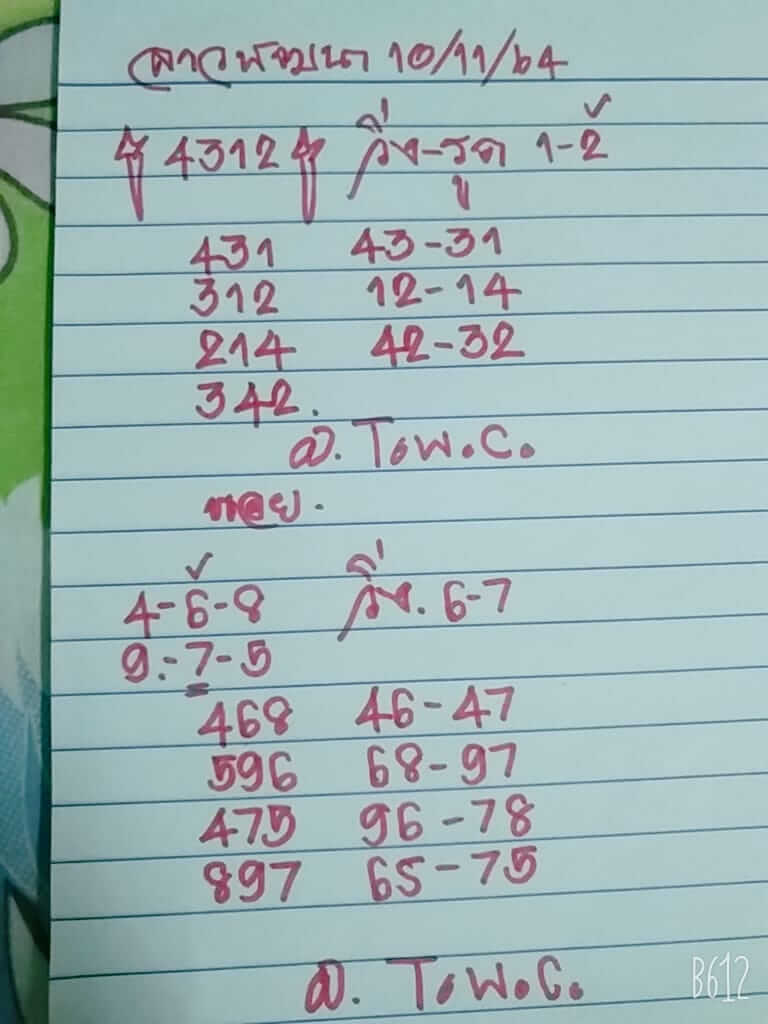 ลาวพัฒนา 10/11/64
4312 วิ่ง-รูด 1-2
431 43-31
312 12-14
214 42-32
342.
T.W.C.
หอย.
4-6-8 วิ่ง. 6-7
9.-7-5
468 46-47
596 68-97
475 96-78
897 65-75
T.W.C.
B612